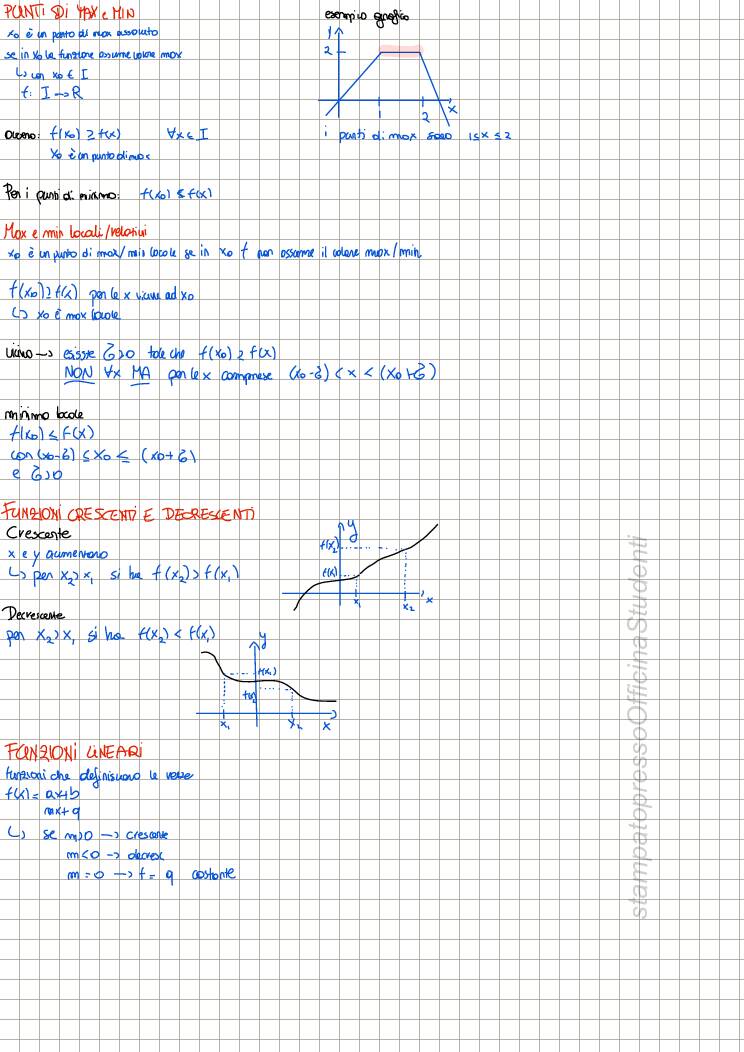 PUNTI DI MAX e MIN
x₀ è un punto di max assoluto
se in x₀ la funzione assume valore max
↳ con x₀ ∈ I
f: I → R
ovvero: f(x₀) ≥ f(x) ∀x ∈ I
x₀ è un punto di max
Per i punti di minimo: f(x₀) ≤ f(x)
esempio grafico
y
2
1
2
x
i punti di max sono 1 ≤ x ≤ 2
Max e min locali/relativi
x₀ è un punto di max/min locale se in x₀ f non assume il valore max/min
f(x₀) ≥ f(x) per le x vicine ad x₀
↳ x₀ è max locale
vicino → esiste δ>0 tale che f(x₀) ≥ f(x)
NON ∀x MA per le x comprese (x₀-δ) < x < (x₀+δ)
minimo locale
f(x₀) ≤ f(x)
con (x₀-δ) ≤ x₀ ≤ (x₀+δ)
e δ>0
FUNZIONI CRESCENTI E DECRESCENTI
Crescente
x e y aumentano
↳ per x₂ > x₁ si ha f(x₂) > f(x₁)
y
f(x₂)
f(x₁)
x₁
x₂
x
Decrescente
per x₂ > x₁ si ha f(x₂) < f(x₁)
y
f(x₁)
f(x₂)
x₁
x₂
x
FUNZIONI LINEARI
funzioni che definiscono le rette
f(x) = ax+b
mx+q
↳ se m>0 → crescente
m<0 → decresc
m=0 → f = q costante
stampatopressoOfficinaStudenti